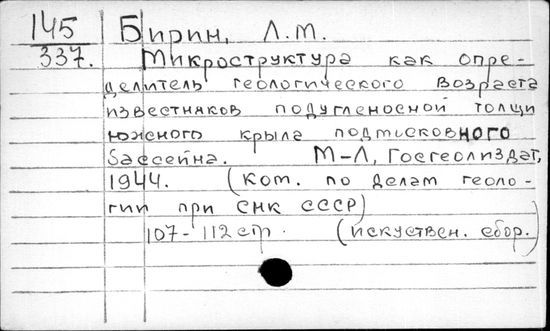 145
337.
Бирин, Л.М.
Микроструктура как опре-
делитель геологического возраста
известняков подугленосной толщи
южного крыла подмосковного
бассейна. М-Л, Госгеолиздат,
1944. (ком. по делам геоло-
гии при СНК СССР)
107-112 стр. (искуствен. сбор.)